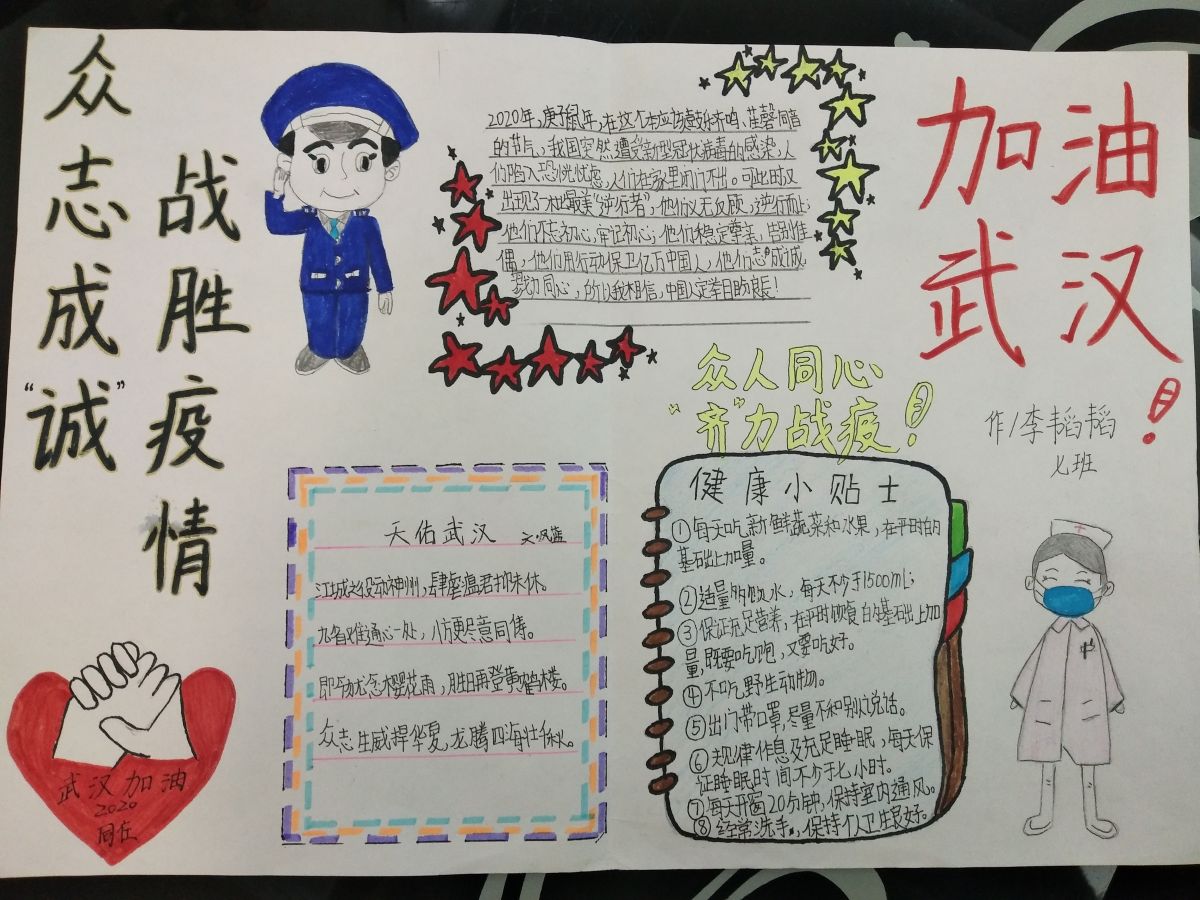 众志成“诚”
战胜疫情
2020年,庚子鼠年,在这个本应该鼓乐齐鸣、
的节气,我国突然遭受新型冠状病毒的感染,人
们陷入恐慌忧虑,人们在家里闭门不出。可此时又
出现了一批最美“逆行者”,他们义无反顾,逆行而上;
他们不忘初心,牢记初心;他们稳定挚亲,告别佳
偶,他们用行动保卫亿万中国人,他们志成诚
同心,所以我相信,中国人定举目盼良长!
加油
武汉!
众人同心
“齐”力战疫!
作/李韬韬
七班
天佑武汉
江城之役动神州,肆虐瘟君抑未休。
九省难通心一处,八方更尽意同俦。
即今尤念樱花雨,胜日再登黄鹤楼。
众志生威捍华夏,龙腾四海壮千秋。
健康小贴士
①每天吃新鲜蔬菜和水果,在平时的
基础上加量。
②适量多饮水,每天不少于1500mL;
③保证充足营养,在平时饮食的基础上加
量,既要吃饱,又要吃好。
④不吃野生动物。
⑤出门带口罩,尽量不和别人说话。
⑥规律作息及充足睡眠,每天保
证睡眠时间不少于七小时。
⑦每天开窗20分钟,保持室内通风。
⑧经常洗手,保持个人卫生良好。
武汉加油
2020
同在